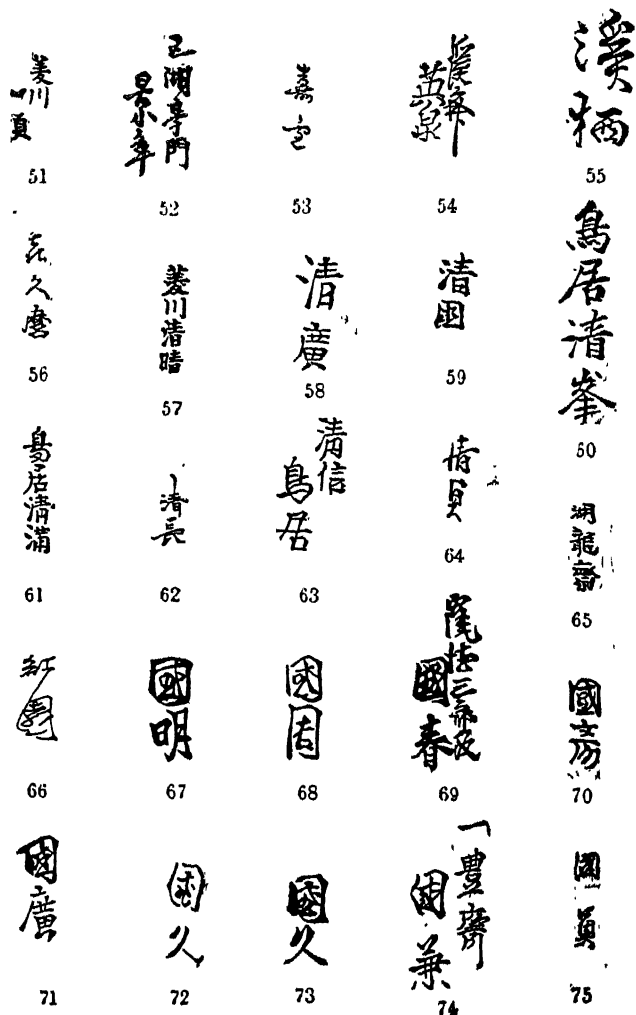 菱川
51
五湖亭門
52
嘉
53
英泉
54
溪栖
55
喜久麿
56
菱川清晴
57
清廣
58
清国
59
鳥居清峯
50
鳥居清滿
61
清長
62
清信
鳥居
63
清貞
64
湖龍齋
65
66
國明
67
國周
68
國春
69
國房
70
國廣
71
國久
72
國久
73
一豊齋
國兼
74
國員
75